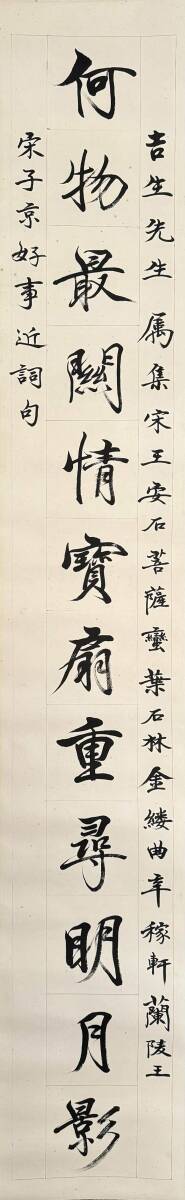 吉生先生 属集宋王安石菩薩蠻葉石林金縷曲辛稼軒蘭陵王
何物最關情寶扇重尋明月影
宋子京好事近詞句